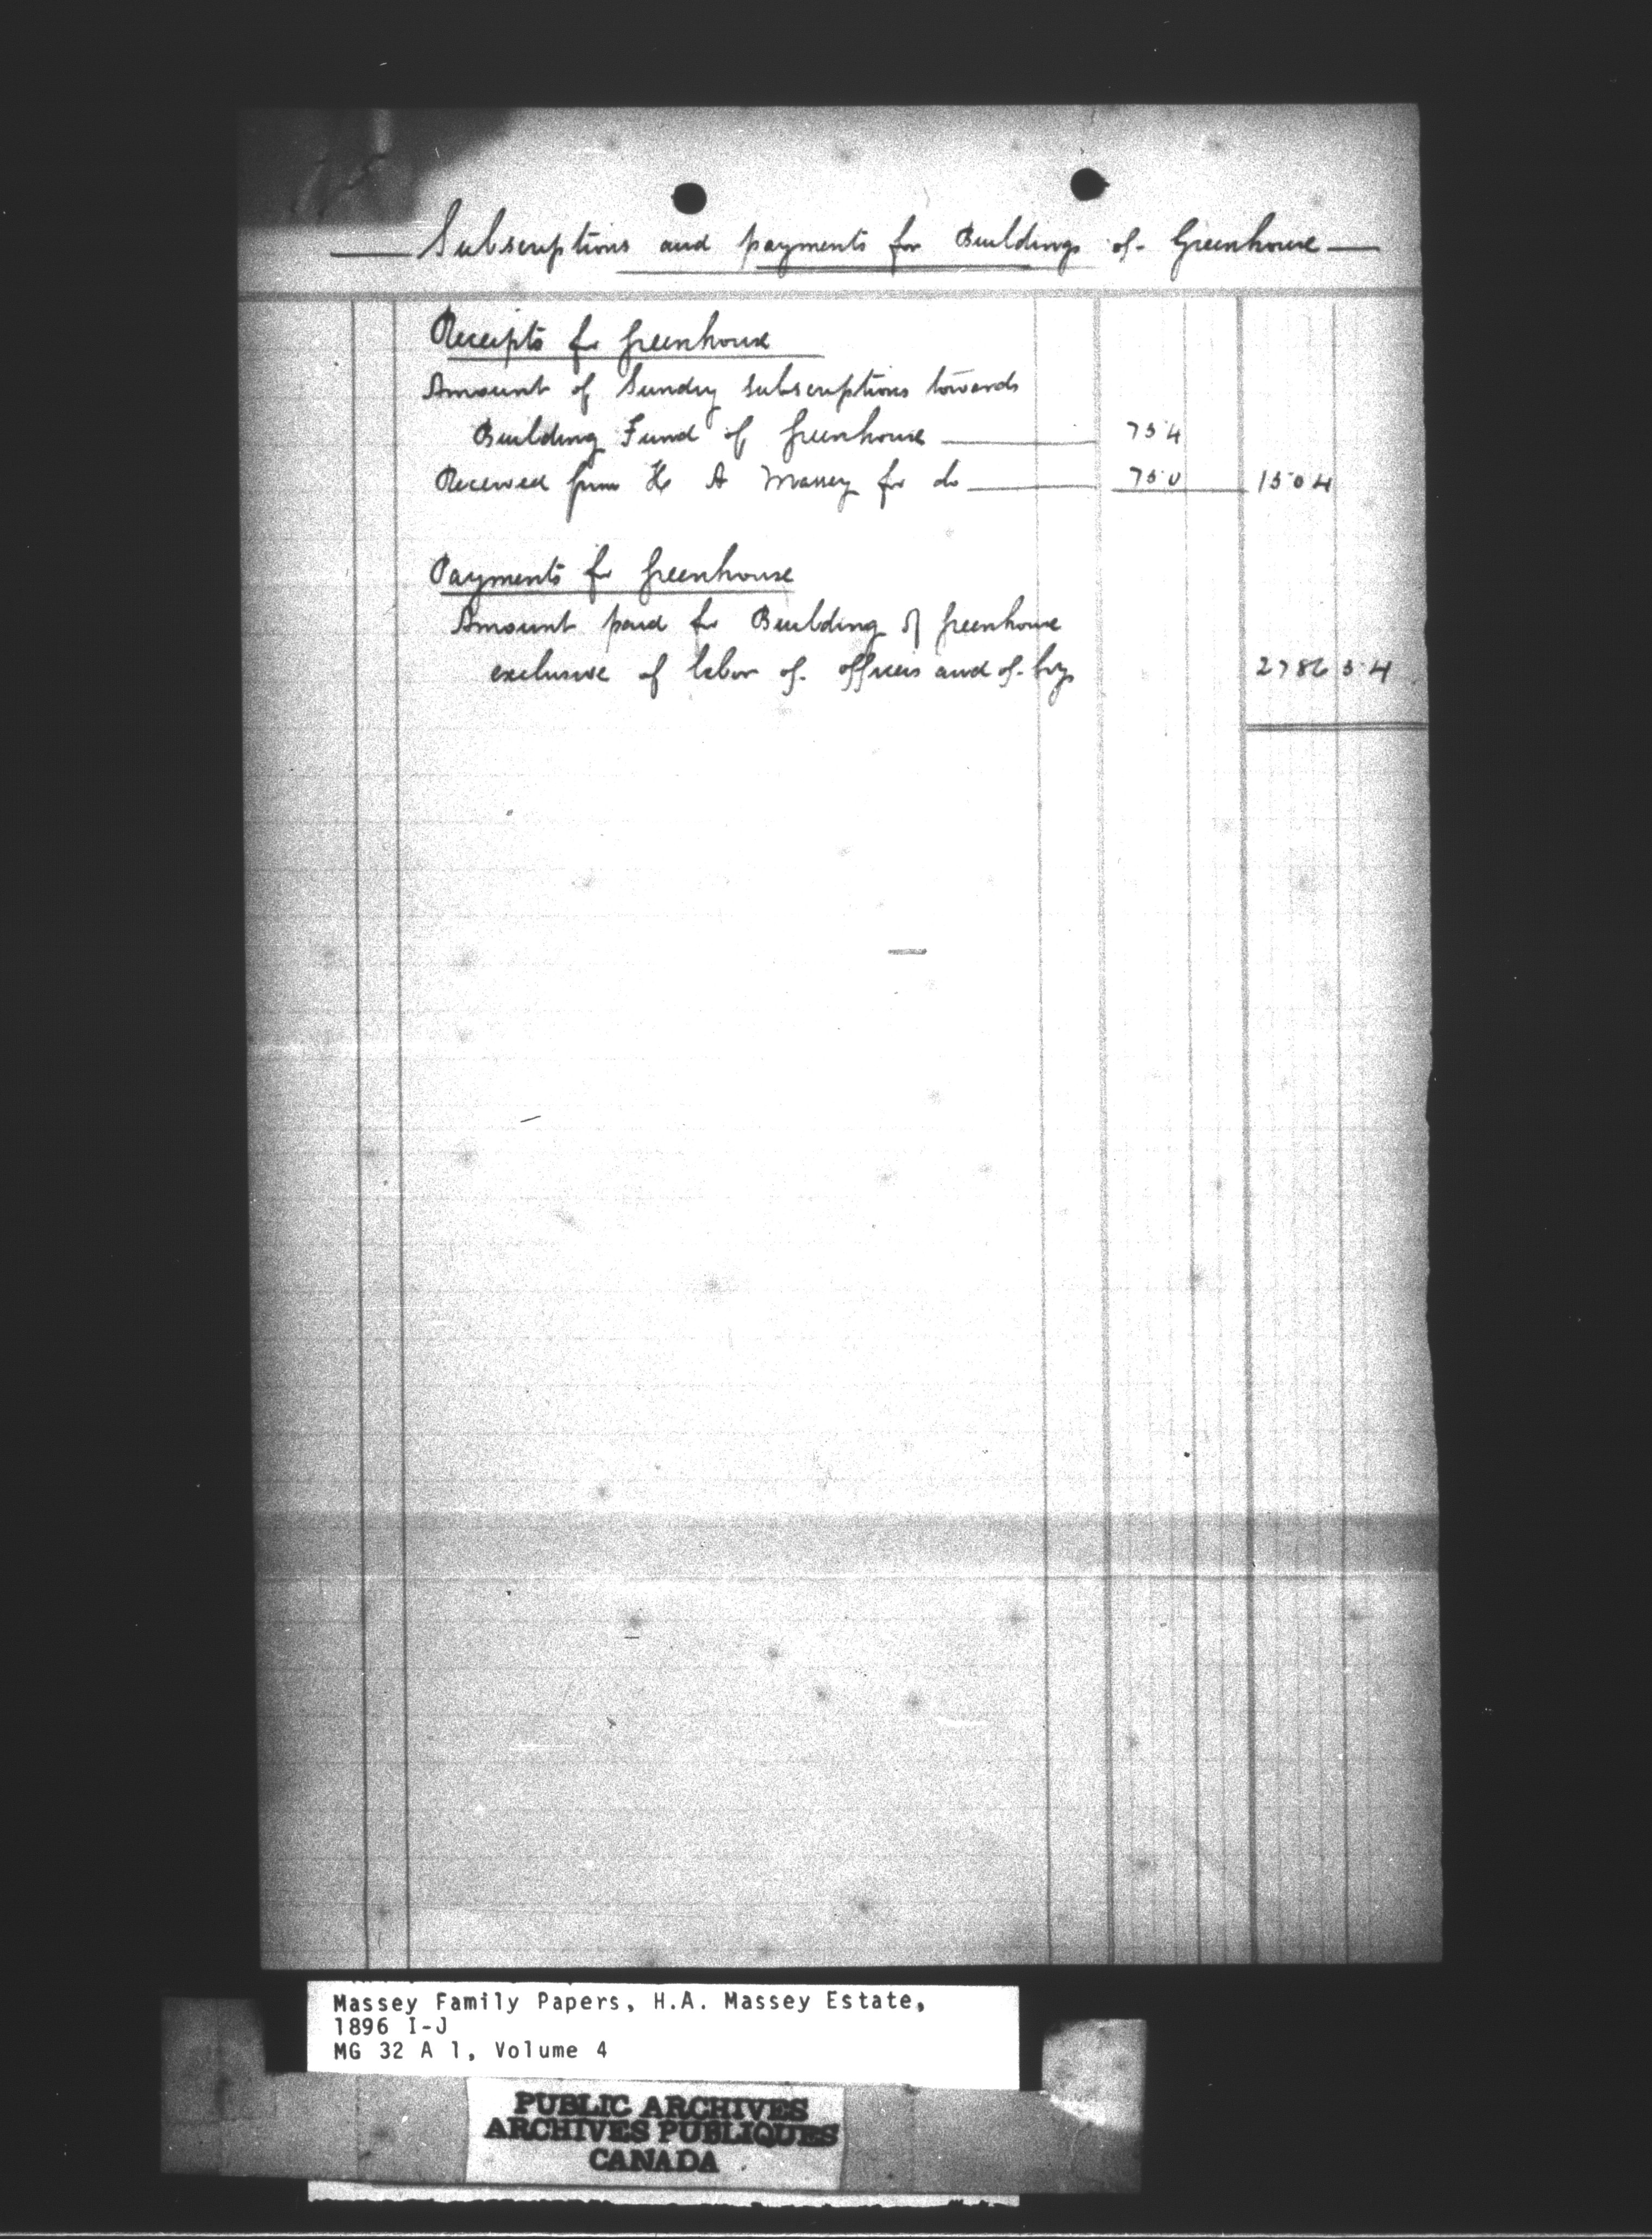 Subscriptions and payments for Buildings of Greenhouse
Receipts for Greenhouse
Amount of Sundry Subscriptions towards
Building Fund of Greenhouse 754
Received from H A Massey for do 750 1504
Payments for Greenhouse
Amount paid for Building of Greenhouse
exclusive of labor of officers and of boys 2786 54
Massey Family Papers, H.A. Massey Estate,
1896 I-J
MG 32 A 1, Volume 4
PUBLIC ARCHIVES
ARCHIVES PUBLIQUES
CANADA